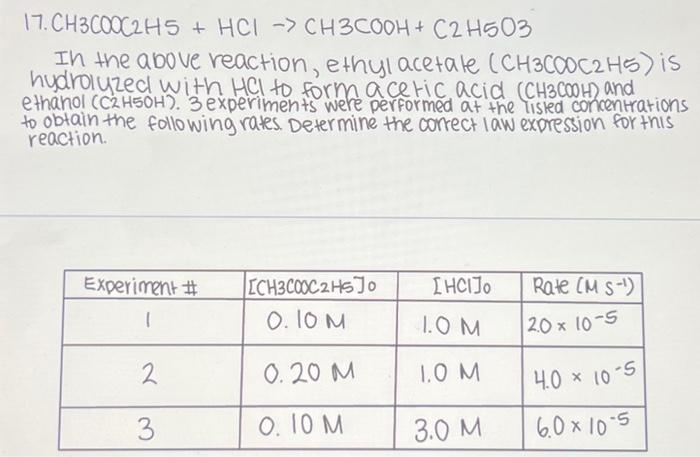 17. CH3COOC2H5 + HCl -> CH3COOH + C2H5O3
In the above reaction, ethyl acetate (CH3COOC2H5) is
hydrolyzed with HCl to form acetic acid (CH3COOH) and
ethanol (C2H5OH). 3 experiments were performed at the listed concentrations
to obtain the following rates. Determine the correct law expression for this
reaction.
Experiment # [CH3COOC2H5]0 [HCl]0 Rate (M s-1)
1 0.10 M 1.0 M 20 × 10-5
2 0.20 M 1.0 M 4.0 × 10-5
3 0.10 M 3.0 M 6.0 × 10-5